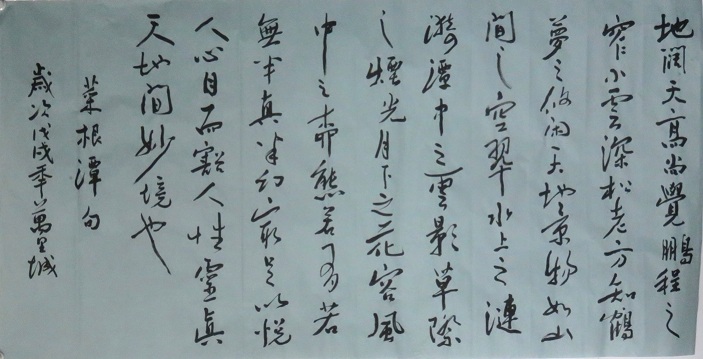 地闊天高尚覺鵬程之
窄小雲深松老方知鶴
夢之悠閑天地景物如山
間之空翠水上之漣
漪潭中之雲影草際
之煙光月下之花容風
中之柳態若有若
無半真半幻最足以悦
人心目而豁人性靈真
天地間妙境也
菜根潭句
歲次戊戌季萬里城